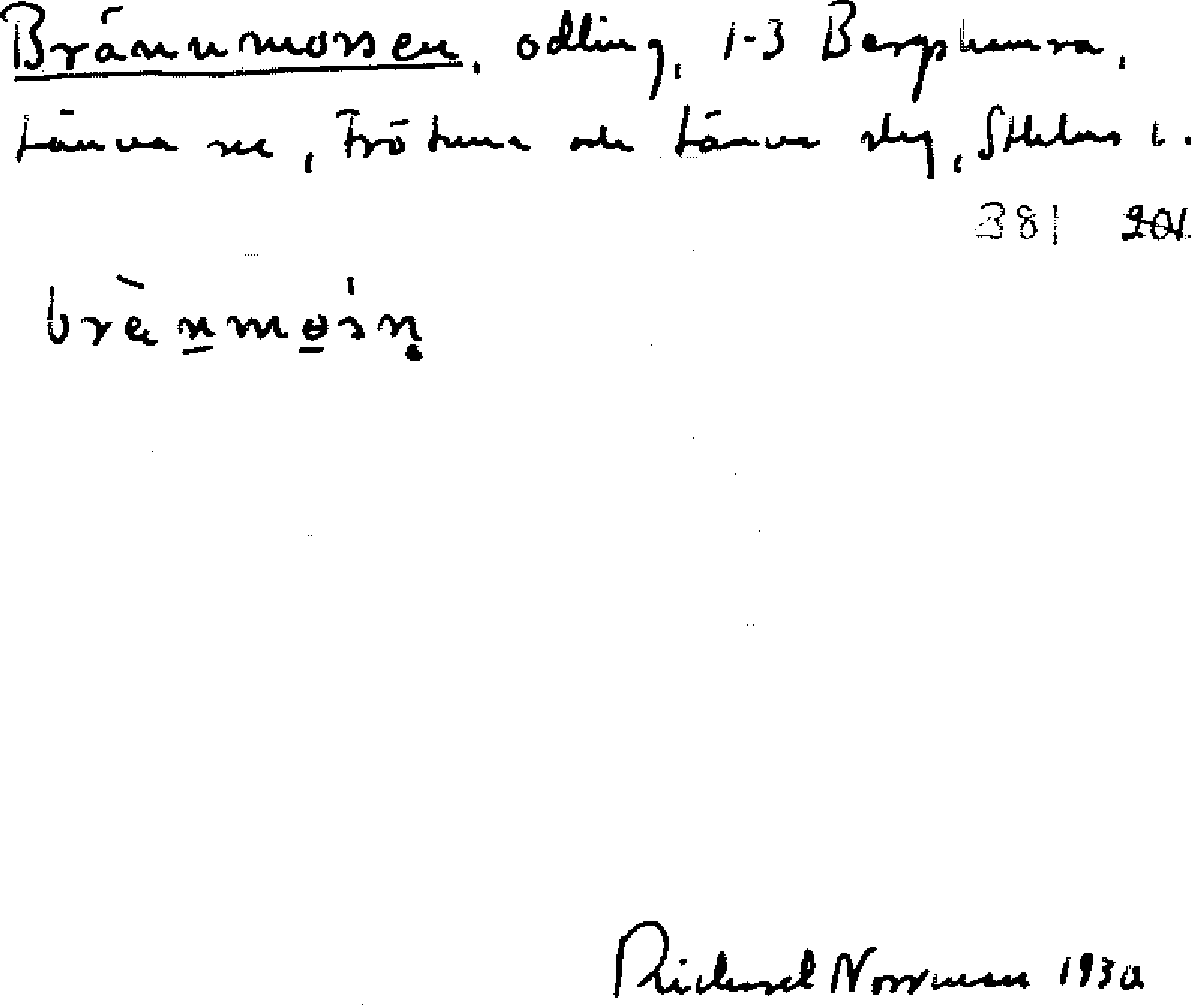 Brännmossen, odling, 1-3 Bergshamra,
Länna sn, Frötuna och Länna skg, Sthlms l.
381 201
brȁnmosn̥
Richard Norrman 1930